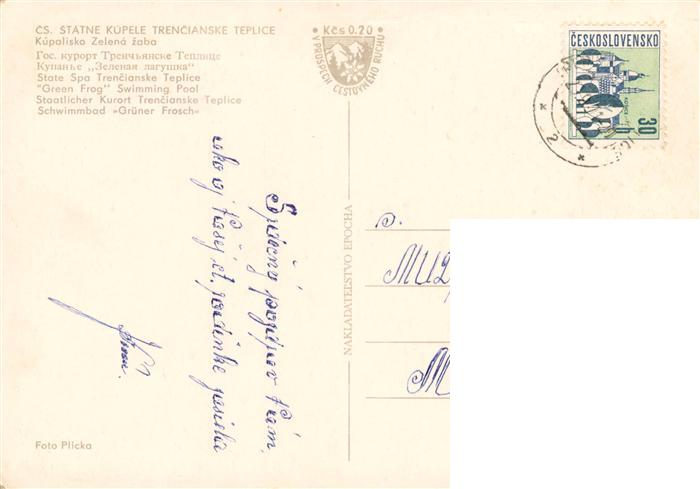 ČS. STÁTNE KÚPELE TRENČIANSKE TEPLICE
Kúpalisko Zelená žaba
Гос. курорт Тренчьянске Теплице
Купанье „Зеленая лагушка"
State Spa Trenčianske Teplice
"Green Frog" Swimming Pool
Staatlicher Kurort Trenčianske Teplice
Schwimmbad »Grüner Frosch«
Kčs 0.70
V PROSPECH CESTOVNÉHO RUCHU
ČESKOSLOVENSKO
30 h
Srdečný pozdrav Vám,
ako aj Vašej ct. rodinke
NAKLADATEĽSTVO EPOCHA
Foto Plicka